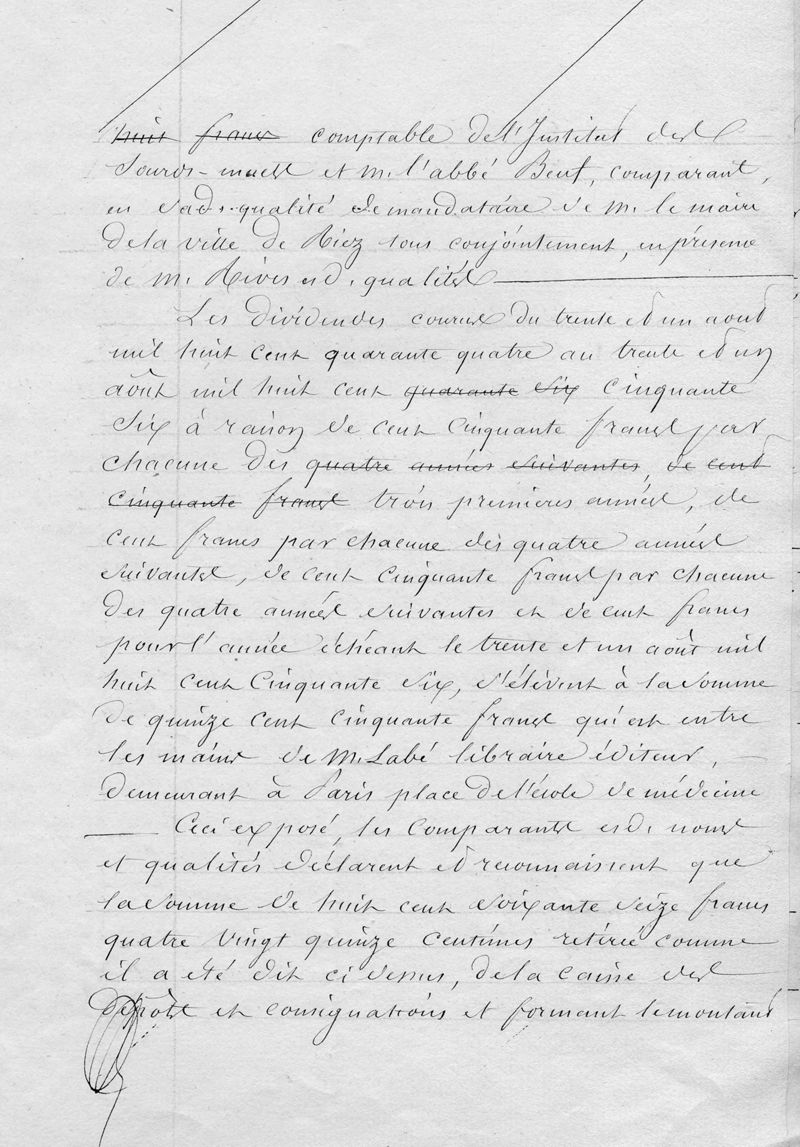 huit francs comptable de l'Institut des
Sourds-muets et M. l'abbé Beuf, comparant,
en sad. qualité de mandataire de M. le maire
de la ville de Riez tous conjointement, en présence
de M. Rives esd. qualités
Les dividendes courus du trente et un août
mil huit cent quarante quatre au trente et un
août mil huit cent quarante six cinquante
six à raison de cent cinquante francs par
chacune des quatre années suivantes, de cent
cinquante francs trois premières années, de
cent francs par chacune des quatre années
suivantes, de cent cinquante francs par chacune
des quatre années suivantes et de cent francs
pour l'année échéant le trente et un août mil
huit cent cinquante six, s'élèvent à la somme
de quinze cent cinquante francs qui est entre
les mains de M. Labé libraire éditeur,
demeurant à Paris place de l'école de médecine
Ceci exposé, les comparants esd. noms
et qualités déclarent et reconnaissent que
la somme de huit cent soixante seize francs
quatre vingt quinze centimes retirée comme
il a été dit ci dessus, de la caisse des
dépôts et consignations et formant le montant